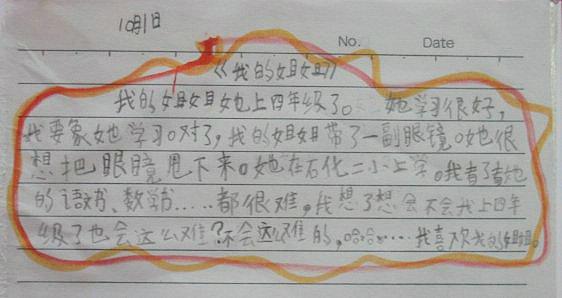 10月1日
No. Date
《我的姐姐》
我的姐姐她上四年级了。她学习很好,
我要象她学习。对了,我的姐姐带了一副眼镜。她很
想把眼镜甩下来。她在石化二小上学。我看了看她
的语文书、数学书……都很难。我想了想会不会我上四年
级了也会这么难?不会这么难的,哈哈……我喜欢我的姐姐。